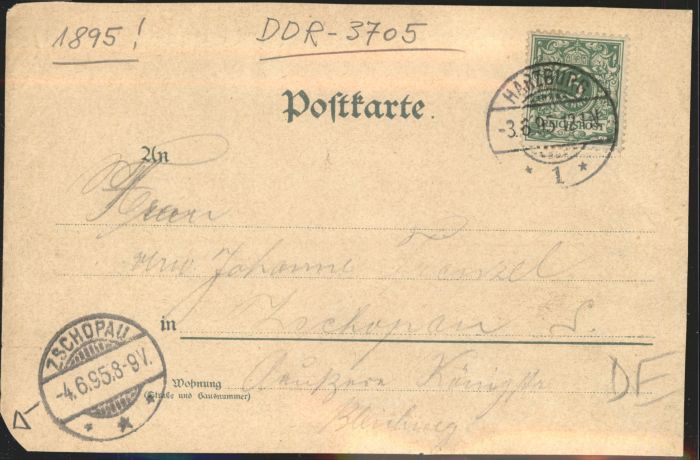 1895!
DDR-3705
Postkarte.
REICHSPOST
HARZBURG
-3.6.95.12-1N.
* 1 *
An
Herrn
Johanne
in Zschopau S.
ZSCHOPAU
-4.6.95.8-9V.
Wohnung
(Straße und Hausnummer)
Äußere Königstr
DE